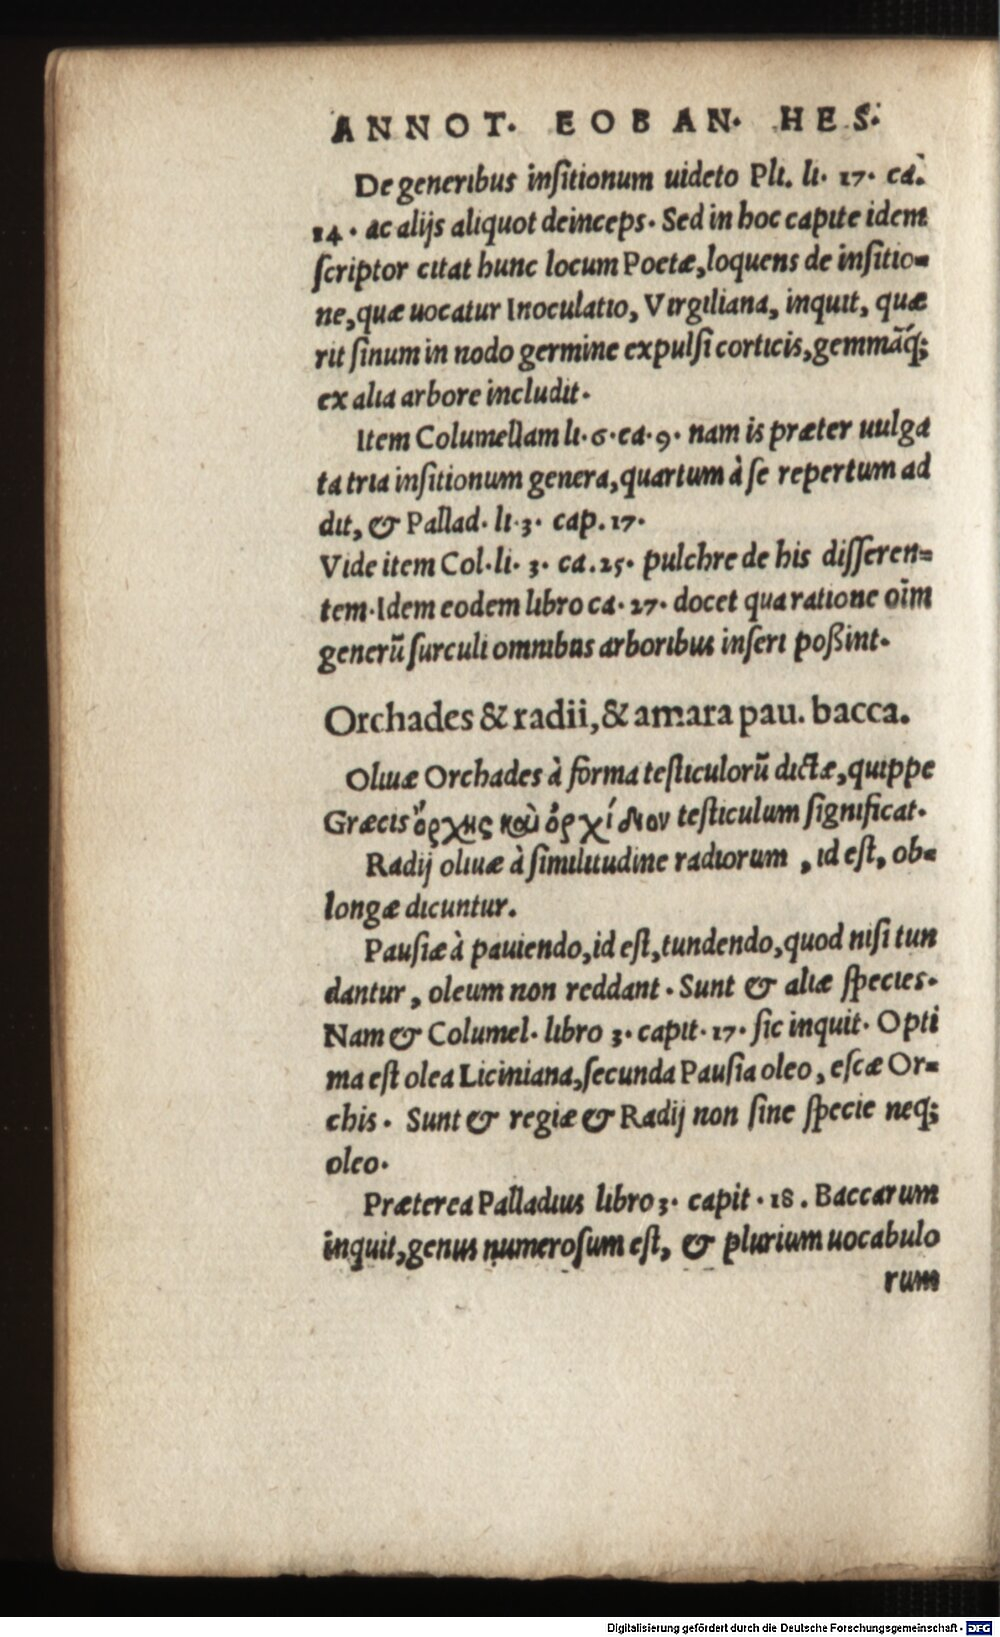 ANNOT. EOBAN. HES.
De generibus inſitionum uideto Pli. li. 17. ca.
14. ac alijs aliquot deinceps. Sed in hoc capite idem
ſcriptor citat hunc locum Poetæ, loquens de inſitio=
ne, quæ uocatur Inoculatio, Virgiliana, inquit, quæ
rit ſinum in nodo germine expulſi corticis, gemmāq́;
ex alia arbore includit.
Item Columellam li. 6. ca. 9. nam is præter uulga
ta tria inſitionum genera, quartum à ſe repertum ad
dit, & Pallad. li. 3. cap. 17.
Vide item Col. li. 3. ca. 25. pulchre de his diſſeren=
tem. Idem eodem libro ca. 27. docet qua ratione oīm
generũ ſurculi omnibus arboribus inſeri poßint.
Orchades & radii, & amara pau. bacca.
Oliuæ Orchades à forma teſticulorũ dictæ, quippe
Græcis ὄρχις καὶ ὀρχίδιον teſticulum ſignificat.
Radij oliuæ à ſimilitudine radiorum, id eſt, ob=
longæ dicuntur.
Pauſiæ à pauiendo, id eſt, tundendo, quod niſi tun
dantur, oleum non reddant. Sunt & aliæ ſpecies.
Nam & Columel. libro 3. capit. 17. ſic inquit. Opti
ma eſt olea Liciniana, ſecunda Pauſia oleo, eſcæ Or=
chis. Sunt & regiæ & Radij non ſine ſpecie neq;
oleo.
Præterea Palladius libro 3. capit. 18. Baccarum
inquit, genus numeroſum eſt, & plurium uocabulo
rum
Digitalisierung gefördert durch die Deutsche Forschungsgemeinschaft - DFG